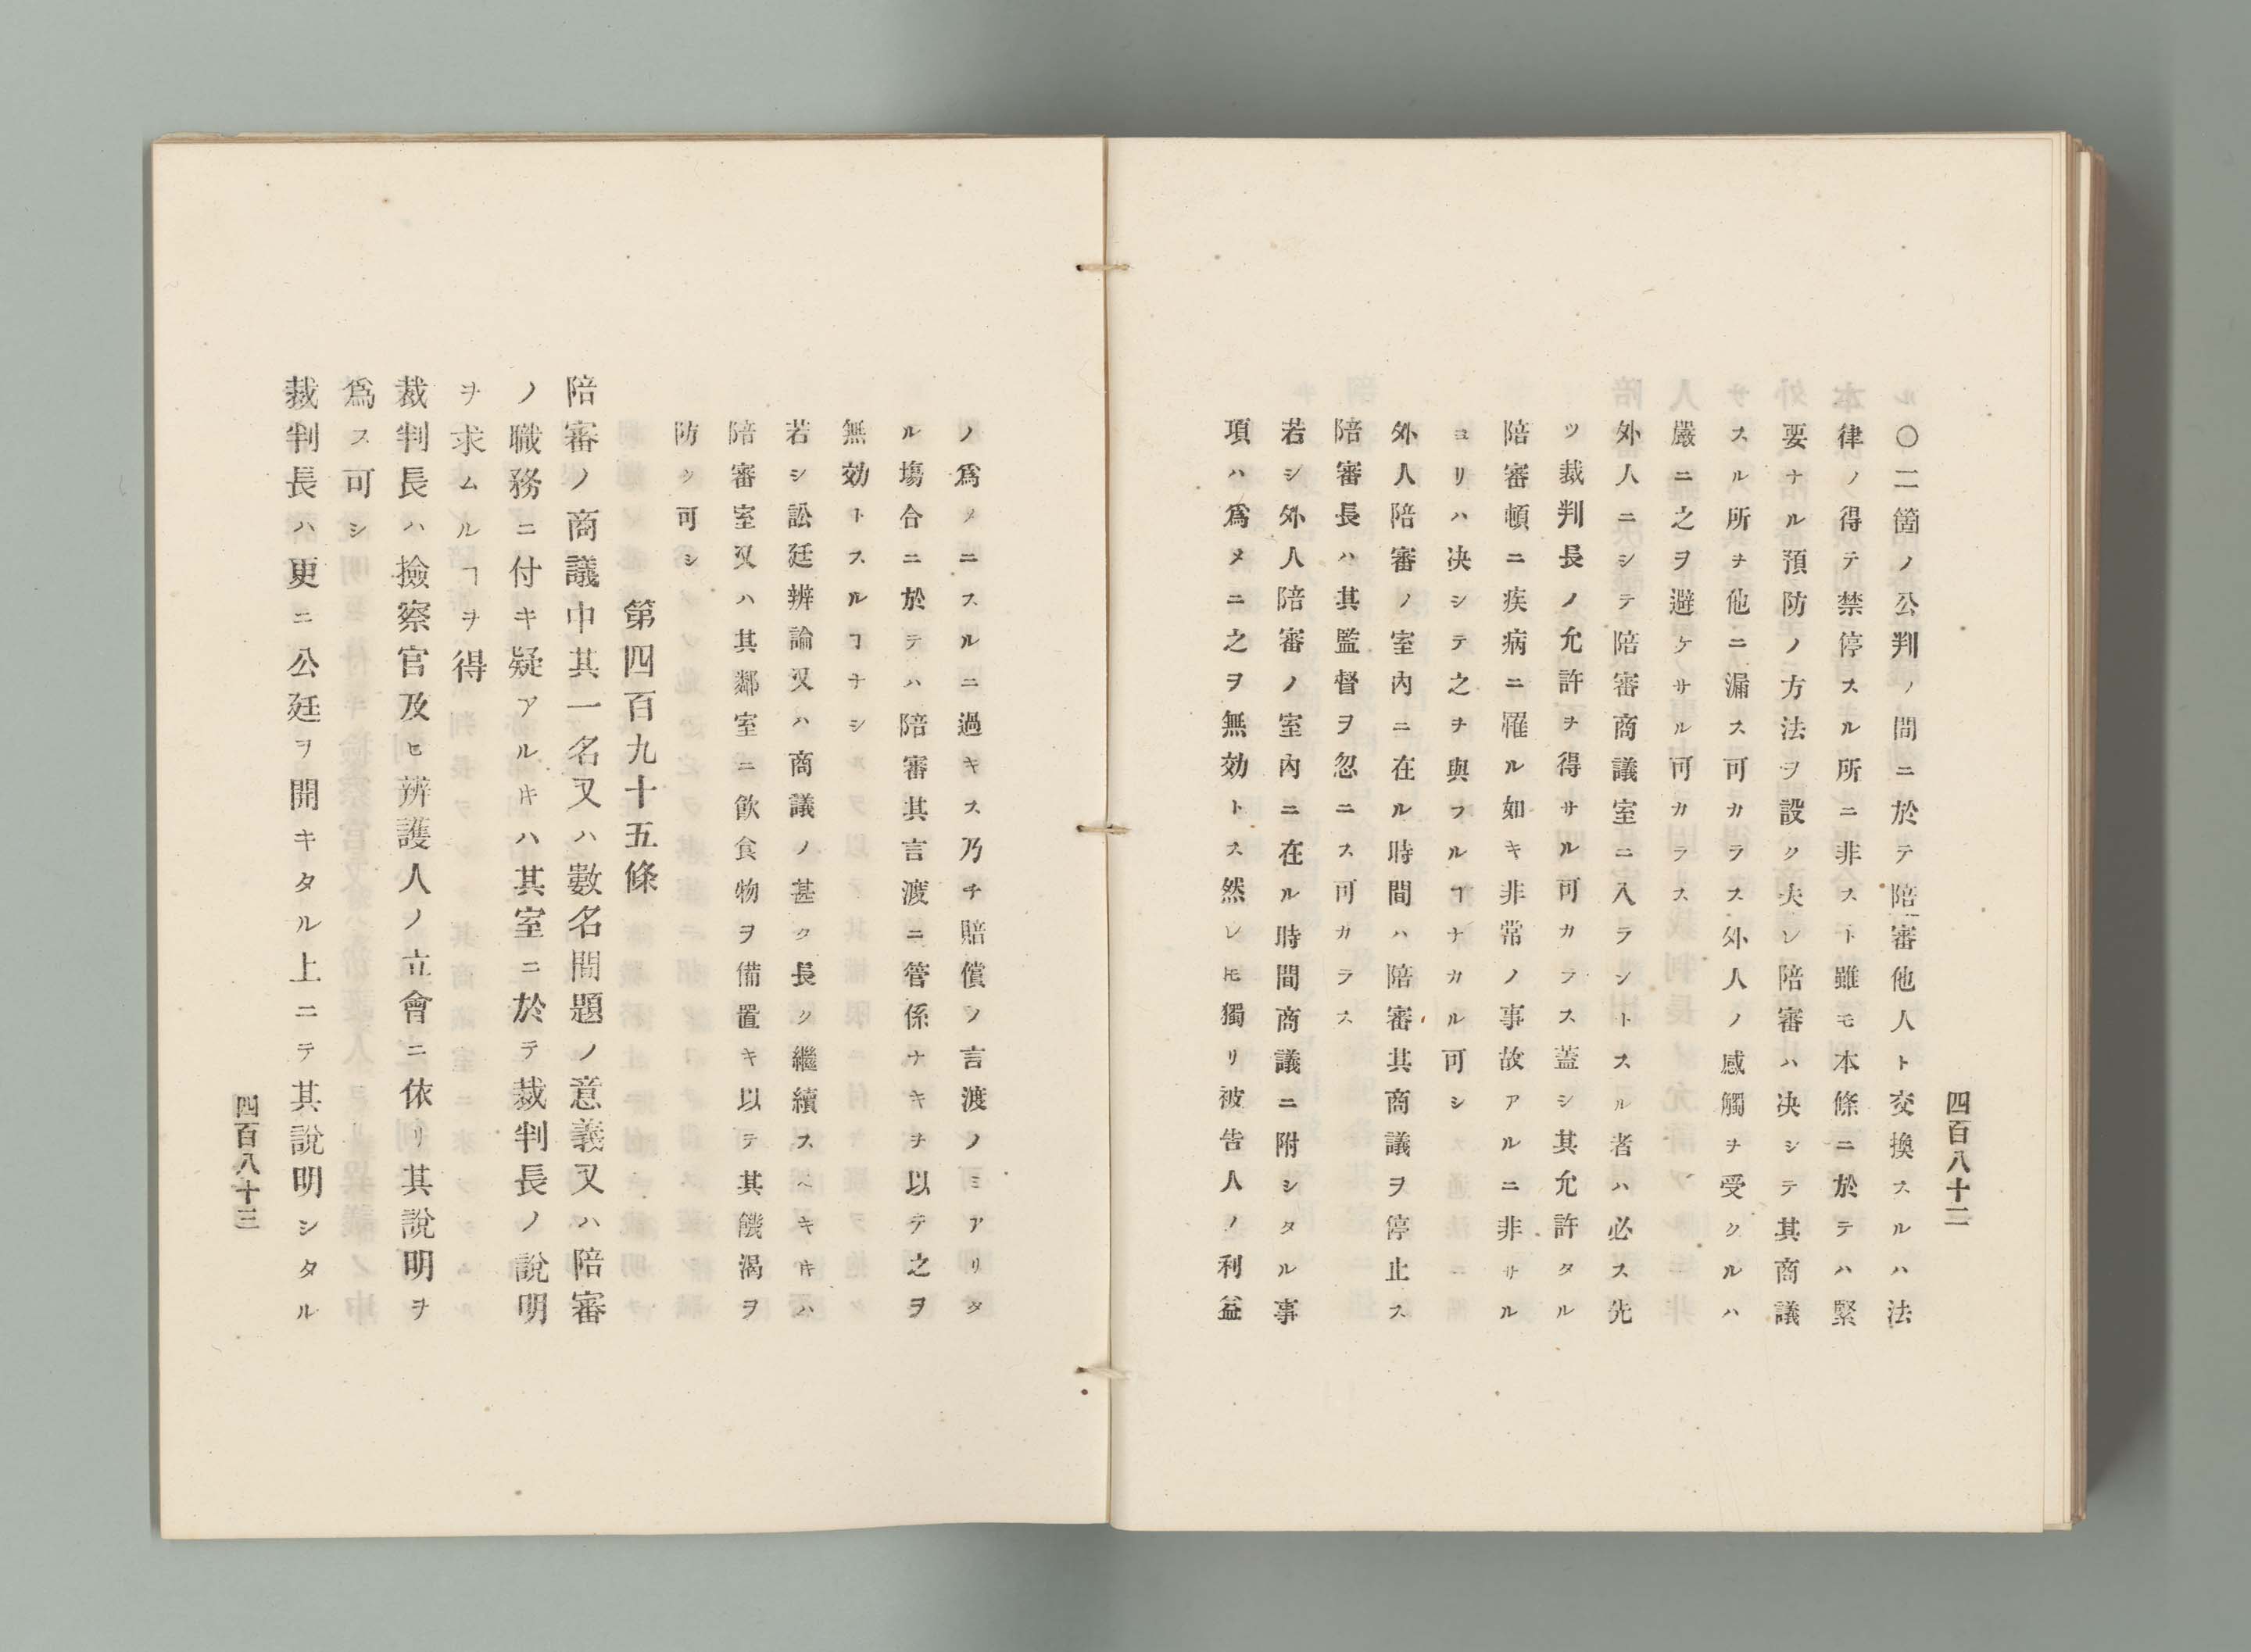 四百八十二
〇二箇ノ公判ノ間ニ於テ陪審他人ト交換スルハ法
律ノ得テ禁停スル所ニ非ストト雖モ本條ニ於テハ緊
要ナル預防ノ方法ヲ設ク夫レ陪審ハ决シテ其商議
スル所ヲ他ニ漏ス可カラス外人ノ感觸ヲ受クルハ
嚴ニ之ヲ避ケサル可カラス
外人ニシテ陪審商議室ニ入ラントスル者ハ必ス先
ツ裁判長ノ允許ヲ得サル可カラス蓋シ其允許タル
陪審頓ニ疾病ニ罹ル如キ非常ノ事故アルニ非サル
ヨリハ决シテ之ヲ與フルヿナカル可シ
外人陪審ノ室內ニ在ル時間ハ陪審其商議ヲ停止ス
陪審長ハ其監督ヲ忽ニス可カラス
若シ外人陪審ノ室內ニ在ル時間商議ニ附シタル事
項ハ爲メニ之ヲ無効トス然レ𪜈獨リ被告人ノ利益
ノ爲メニスルニ過キス乃チ賠償ノ言渡ノミアリタ
ル塲合ニ於テハ陪審其言渡ニ管係ナキヲ以テ之ヲ
無効トスルヿナシ
若シ訟廷辨論又ハ商議ノ甚タ長ク繼續スヘキ𪜈ハ
陪審室又ハ其鄰室ニ飮食物ヲ備置キ以テ其饑渴ヲ
防ク可シ
第四百九十五條
陪審ノ商議中其一名又ハ數名問題ノ意義又ハ陪審
ノ職務ニ付キ疑アルキハ其室ニ於テ裁判長ノ說明
ヲ求ムルヿヲ得
裁判長ハ撿察官及ヒ辨護人ノ立會ニ依リ其說明ヲ
爲ス可シ
裁判長ハ更ニ公廷ヲ開キタル上ニテ其說明シタル
四百八十三